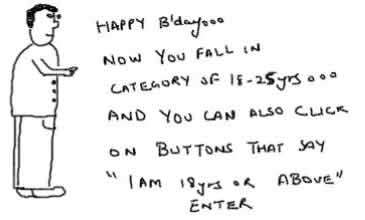 HAPPY B'day ooo
NOW YOU FALL IN
CATEGORY OF 18-25yrs ooo
AND YOU CAN ALSO CLICK
ON BUTTONS THAT SAY
"I AM 18yrs OR ABOVE"
ENTER